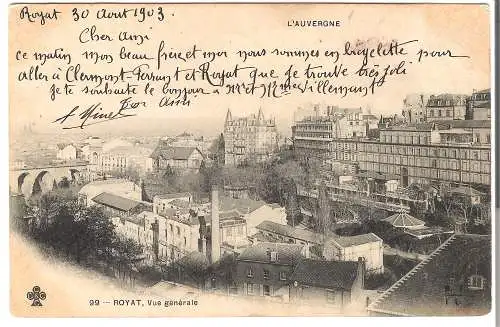 Royat 30 Aout 1903
L'AUVERGNE
Cher Ami
ce matin mon beau frère et moi nous sommes en bicyclette pour
aller à Clermont-Ferrant et Royat que je trouve très joli
Je te souhaite le bonjour à Mr et Mme Villemant
Ton Ami
99 - ROYAT, Vue générale